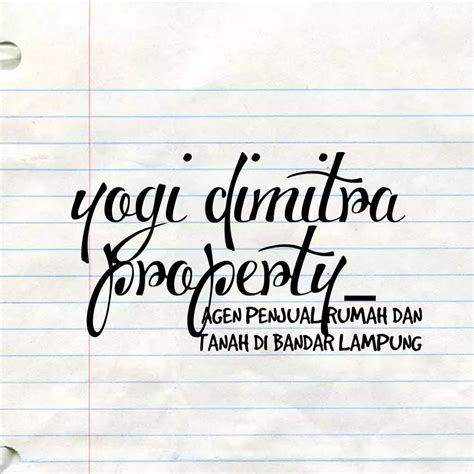 yogi dimitra
property_
AGEN PENJUAL RUMAH DAN
TANAH DI BANDAR LAMPUNG